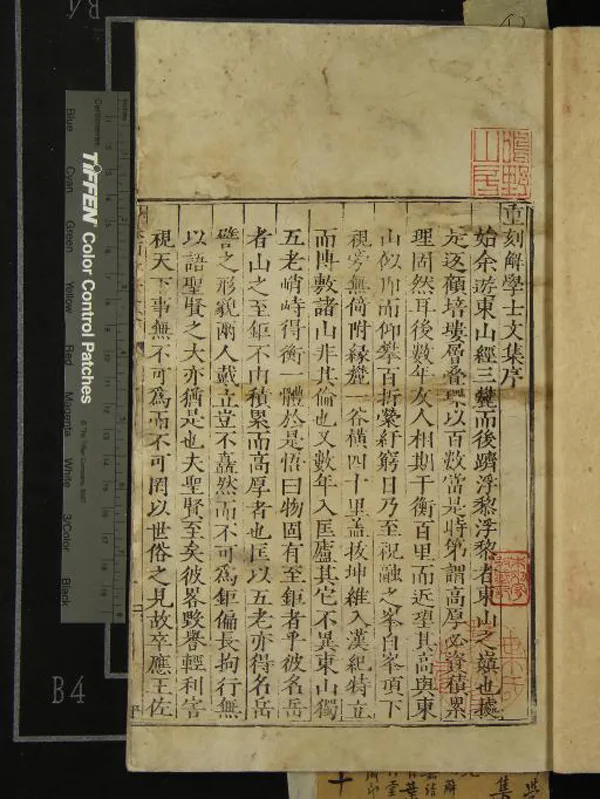 重刻解學士文集序
始余遊東山經三巇而後躋浮黎浮黎者東山之巔也據
是返顧培塿層叠纍以百數當是時第謂高厚必資積累
理固然耳後數年友人相期于衡百里而近望其高與東
山似卽而仰攀百折縈紆窮日乃至祝融之峯自峯項下
視旁無倚附緣麓一谷橫四十里盖拔坤維入漢紀特立
而博敷諸山非其倫也又數年入匡廬其它不異東山獨
五老峭峙得衡一體於是悟曰物固有至鉅者乎彼名岳
者山之至鉅不由積累而高厚者也匡以五老亦得名岳
譬之形貌兩人戴立豈不矗然而不可爲鉅偏長拘行無
以語聖賢之大亦猶是也夫聖賢至矣彼畧毀譽輕利害
視天下事無不可爲而不可罔以世俗之見故卒應王佐
TIFFEN Color Control Patches
© The Tiffen Company, 2007
Centimetres
Blue
Cyan
Green
Yellow
Red
Magenta
White
3/Color
Black
B4
B4
集